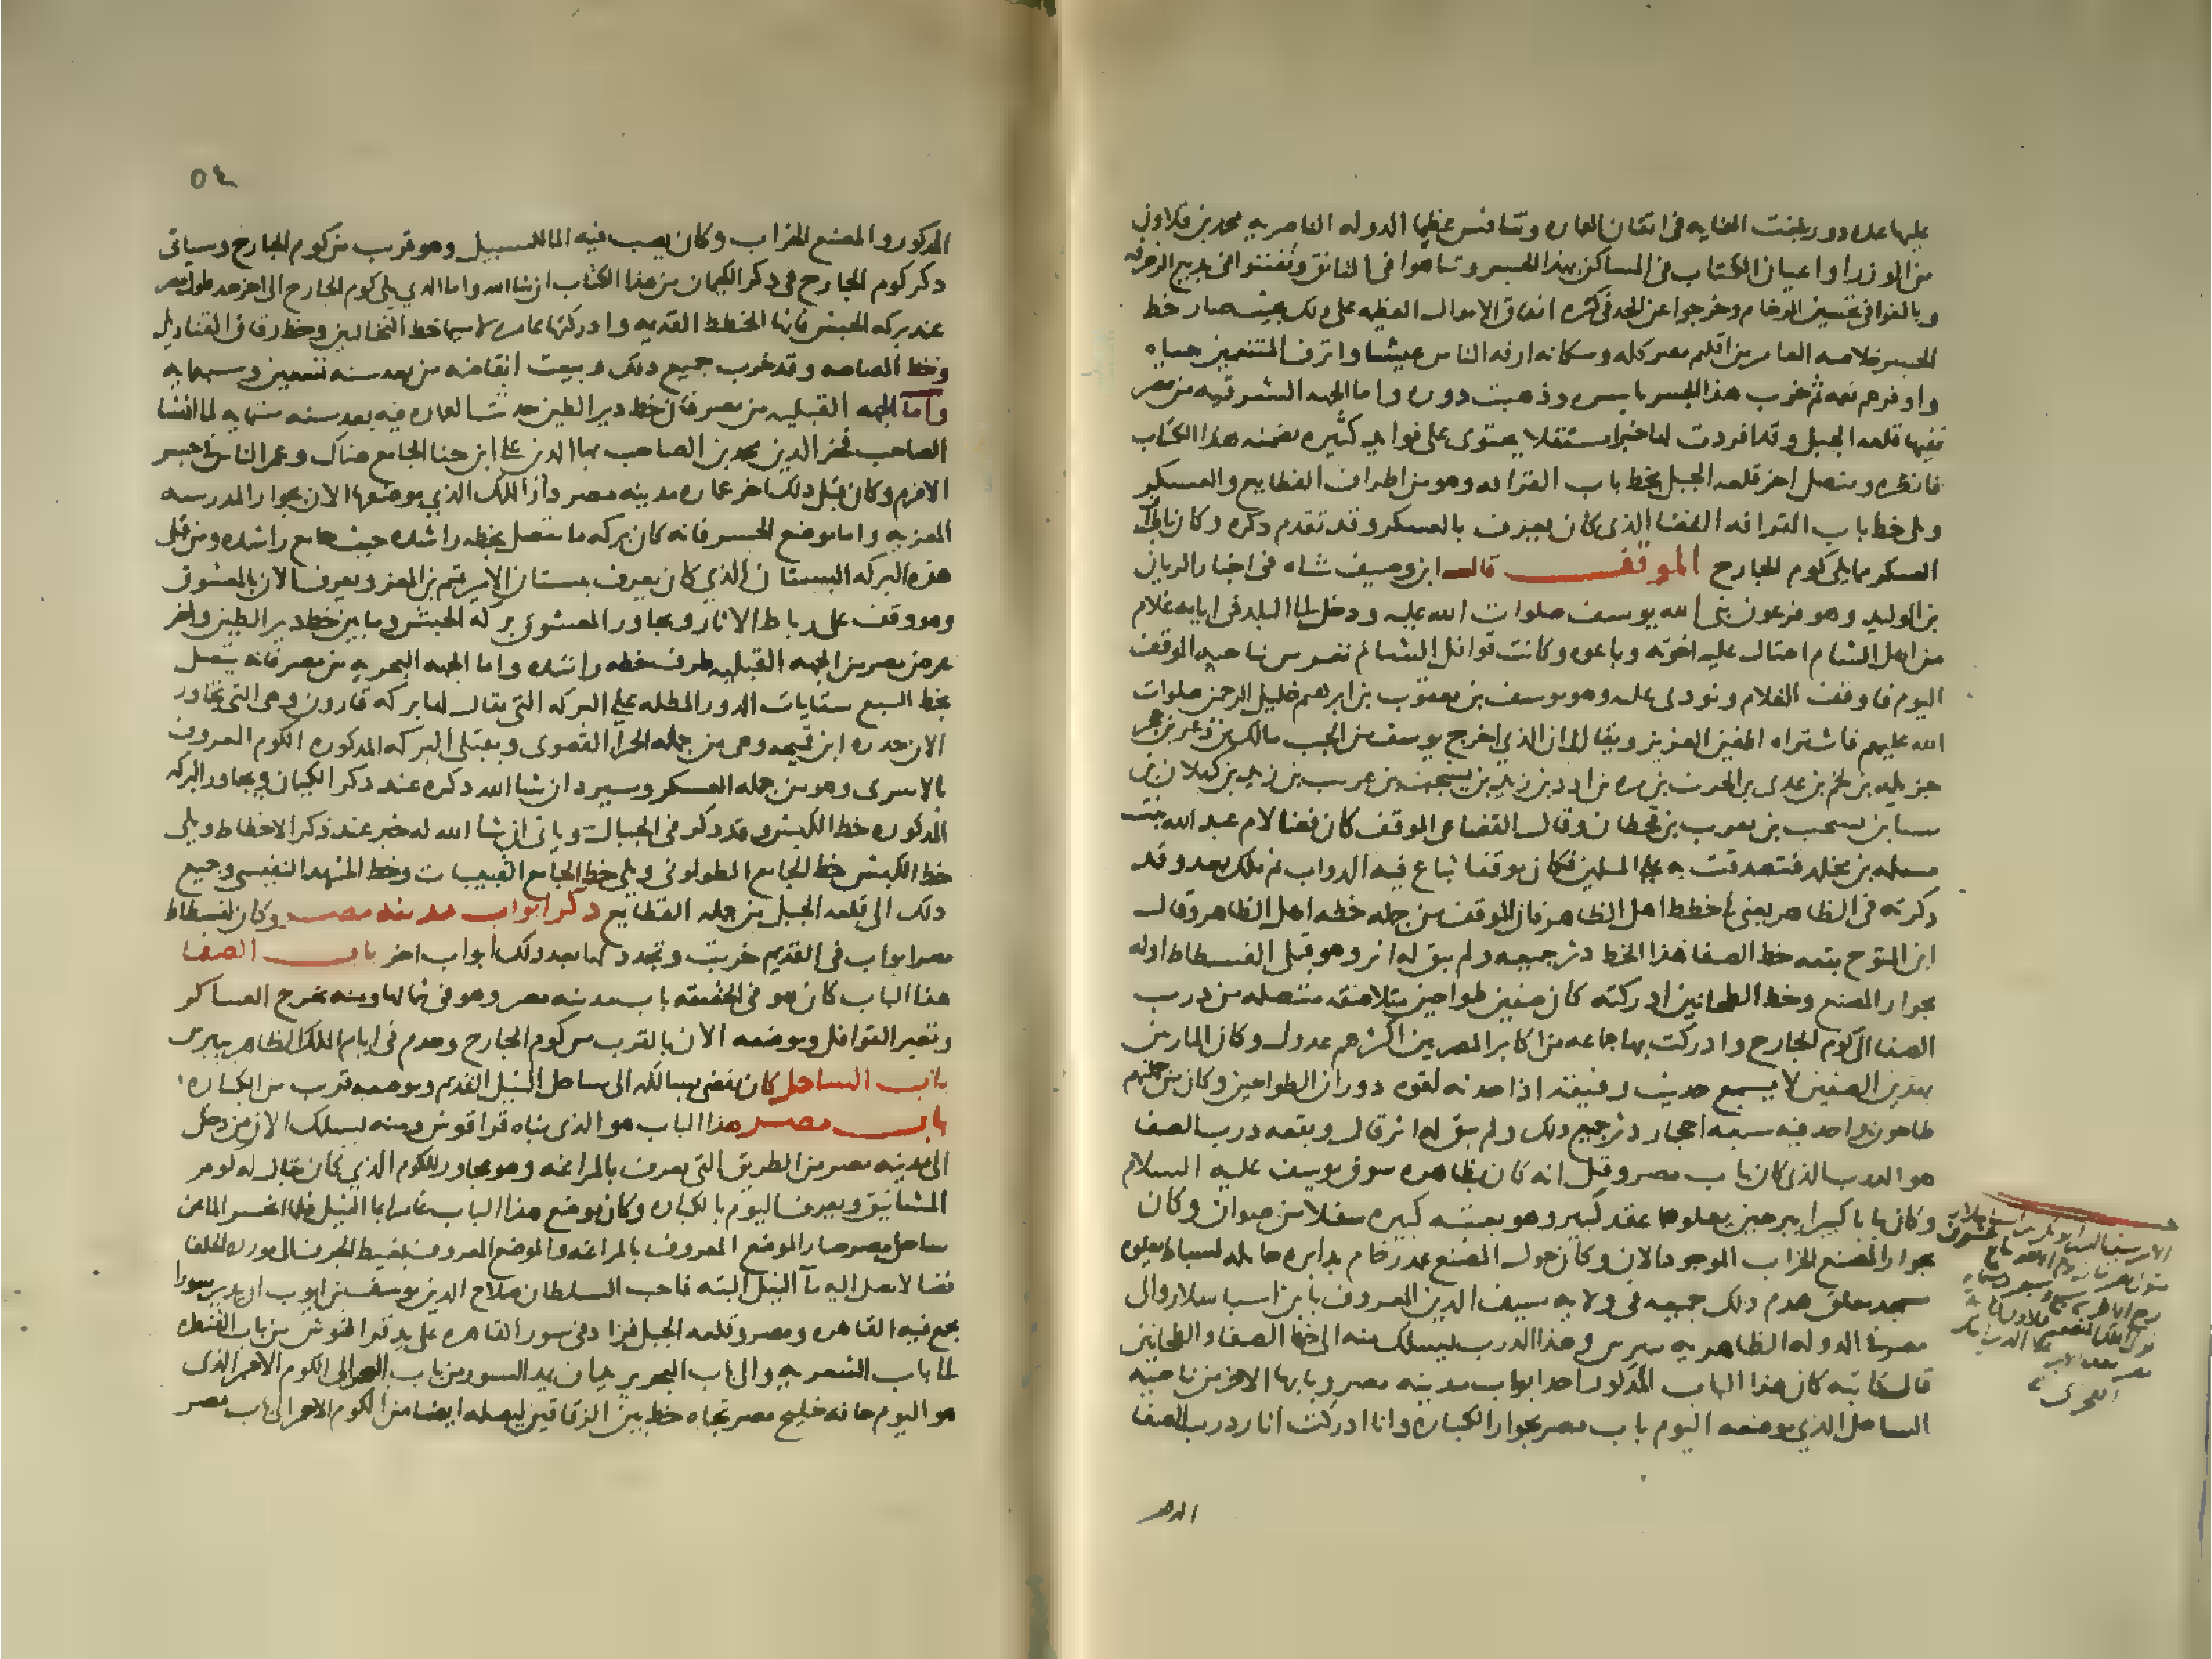 عليها عده دور بلغت الغايه فى اتقان العماره وتنافس عظما الدوله الناصريه محمد بن قلاون
من الوزرا واعيان الكتاب فى المساكن بهذا الجسر وتناهوا فى التانق وتفننوا فى بديع الزخرفه
وبالغوا فى تحسين الرخام وخرجوا عن الحد فى كثره انفاق الاموال العظيمه على ذلك بحيث صار خط
الجسر خلاصه العامر من اقليم مصر كله وسكانه ارفه الناس عيشا واترف المتنعمين حياه
واوفرهم نعمه ثم خرب هذا الجسر باسره وذهبت دوره واما الجهه الشرقيه من مصر
ففيها قلعه الجبل وقد افردت لها خبرا مستقلا يحتوى على فوايد كثيره تضمنه هذا الكتاب
فانظره ويتصل اخر قلعه الجبل بخط باب القرافه وهو من اطراف القطايع والعسكر
ويلى خط باب القرافه الفضا الذى كان يعرف بالعسكر وقد تقدم ذكره وكان باخر
العسكر مما يلى كوم الجارح الموقف قال ابن وصيف شاه فى اخبار الريان
بن الوليد وهو فرعون نبى الله يوسف صلوات الله عليه ودخل الى البلد فى ايامه غلام
من اهل الشام احتال عليه اخوته وباعوه وكانت قوافل الشام تعرس بناحيه الموقف
اليوم فاوقف الغلام ونودى عليه وهو يوسف بن يعقوب بن ابراهيم خليل الرحمن صلوات
الله عليهم فاشتراه اطفين العزيز ويقال ان الذى اخرج يوسف من الجب مالك بن ذعر بن حجر
جزيله بن لخم بن عدى بن الحرث بن مره بن ادد بن زيد بن يشجب بن عريب بن زيد بن كهلان بن
سبا بن يشجب بن يعرب بن قحطان وقال القضاعى الموقف كان فضا لام عبد الله بنت
مسلمه بن مخلد فتصدقت به على المسلمين فكان موقفا تباع فيه الدواب ثم ملك بعد وقد
ذكرته فى الظاهر يعنى فى خطط اهل الظاهر فان الموقف من جمله خطه اهل الظاهر وقال
ابن المتوج بقعه خط الصفا هذا الخط دثر جميعه ولم يبق له اثر وهو قبلى الفسطاط اوله
بجوار المصنع وخط الطحانين ادركته كان صفين طواحين متلاصقه متصله من درب
الصفا الى كوم الجارح وادركت بها جماعه من اكابر المصريين اكثرهم عدول وكان المار بين
هذين الصفين لا يسمع حديث رفيقه اذا حدثه لقوه دوران الطواحين وكان من جملتهم
طاحون واحد فيه سبعه احجار دثر جميع ذلك ولم يبق له اثر قال وبقعه درب الصفا
هو الدرب الذى كان باب مصر وقيل انه كان بظاهره سوق يوسف عليه السلام
وكان بابا كبيرا ببرجين يعلوهما عقد كبير وهو بعتبه كبيره سفلا من صوان وكان
بجوار المصنع الخراب الموجود الان وكان حول المصنع عمد رخام بدايره حامله لساباط يعلوه
مسجد معلق هدم ذلك جميعه فى ولايه سيف الدين المعروف بابن اسباسلار والى
مصر فى الدوله الظاهريه بيبرس وهذا الدرب يسلك منه الى خط الصفا والطحانين
قال كاتبه كان هذا الباب المذكور احد ابواب مدينه مصر وبابها الاخر من ناحيه
الساحل الذى موضعه اليوم باب مصر بجوار الكباره وانا ادركت اثار درب الصفا
المذكور والمصنع الخراب وكان يصب فيه الما للسبيل وهو قريب من كوم الجارح وسياتى
ذكر كوم الجارح فى ذكر الكيمان من هذا الكتاب ان شا الله واما الذى يلى كوم الجارح الى اخر حد طول مصر
عند بركه الحبش فانها الخطط القديمه وادركتها عامره لا سيما خط النخالين وخط زقاق القناديل
وخط المصاصه وقد خرب جميع ذلك وبيعت انقاضه من بعد سنه تسعين وسبعمايه
واما الجهه القبليه من مصر فان خط دير الطين حدثت العماره فيه بعد سنه ستمايه لما انشا
الصاحب فخر الدين محمد بن الصاحب بها الدين على ابن حنا الجامع هناك وعمر الناس فى جسر
الافرم وكان قبل ذلك اخر عماره مدينه مصر دار الملك الذى موضعها الان بجوار المدرسه
المعزيه واما موضع الجسر فانه كان بركه ما تتصل بخطه راشده حيث جامع راشده ومن قبلى
هذه البركه البستان الذى كان يعرف ببستان الامير تميم بن المعز ويعرف الان بالمعشوق
وهو وقف على رباط الاثار ويجاور المعشوق بركه الحبش وما بين خطه دير الطين واخر
عرض مصر من الجهه القبليه طرف خطه راشده واما الجهه البحريه من مصر فانه يتصل
بخط السبع سقايات الدور المطله على البركه التى يقال لها بركه قارون وهى التى تجاور
الان حدره ابن قميحه وهى من جمله الحمرا القصوى وبقبلى البركه المذكوره الكوم المعروف
بالاسرى وهو من جمله العسكر وسيرد ان شا الله ذكره عند ذكر الكيمان ويجاور البركه
المذكوره خط الكبش وقد ذكر فى الجبال وياتى ان شا الله له خبر عند ذكر الاخطاط ويلى
خط الكبش خط الجامع الطولونى ويلى خط الجامع القبيبات وخط المشهد النفيسى وجميع
ذلك الى قلعه الجبل من جمله القطايع ذكر ابواب مدينه مصر وكان لفسطاط
مصر ابواب فى القديم خربت وتجدد لها بعد ذلك ابواب اخر باب الصفا
هذا الباب كان هو فى الحقيقه باب مدينه مصر وهو فى كمالها ومنه تخرج العساكر
وتعبر القوافل وموضعه الان بالقرب من كوم الجارح وهدم فى ايام الملك الظاهر بيبرس
باب الساحل كان يفضى بسالكه الى ساحل النيل القديم وموضعه قريب من الكباره
باب مصر هذا الباب هو الذى بناه قراقوش ومنه يسلك الان من دخل
الى مدينه مصر من الطريق التى تعرف بالمراغه وهو مجاور للكوم الذى كان يقال له كوم
المشانيق ويعرف اليوم بالكباره وكان موضع هذا الباب غامرا بما النيل فلما انحسر الما عن
ساحل مصر صار الموضع المعروف بالمراغه والموضع المعروف بغيط الجرف الى موردة الحلفا
فضا لا يصل اليه ما النيل البته فاحب السلطان صلاح الدين يوسف بن ايوب ان يدير سورا
يجمع فيه القاهره ومصر وقلعه الجبل فزاد فى سور القاهره على يد قراقوش من باب القنطره
الى باب الشعريه والى باب البحر يريد ان يمد السور من باب البحر الى الكوم الاحمر الذى
هو اليوم حافه خليج مصر تجاه خط بين الزقاقين ليصله ايضا من الكوم الاحمر الى باب مصر